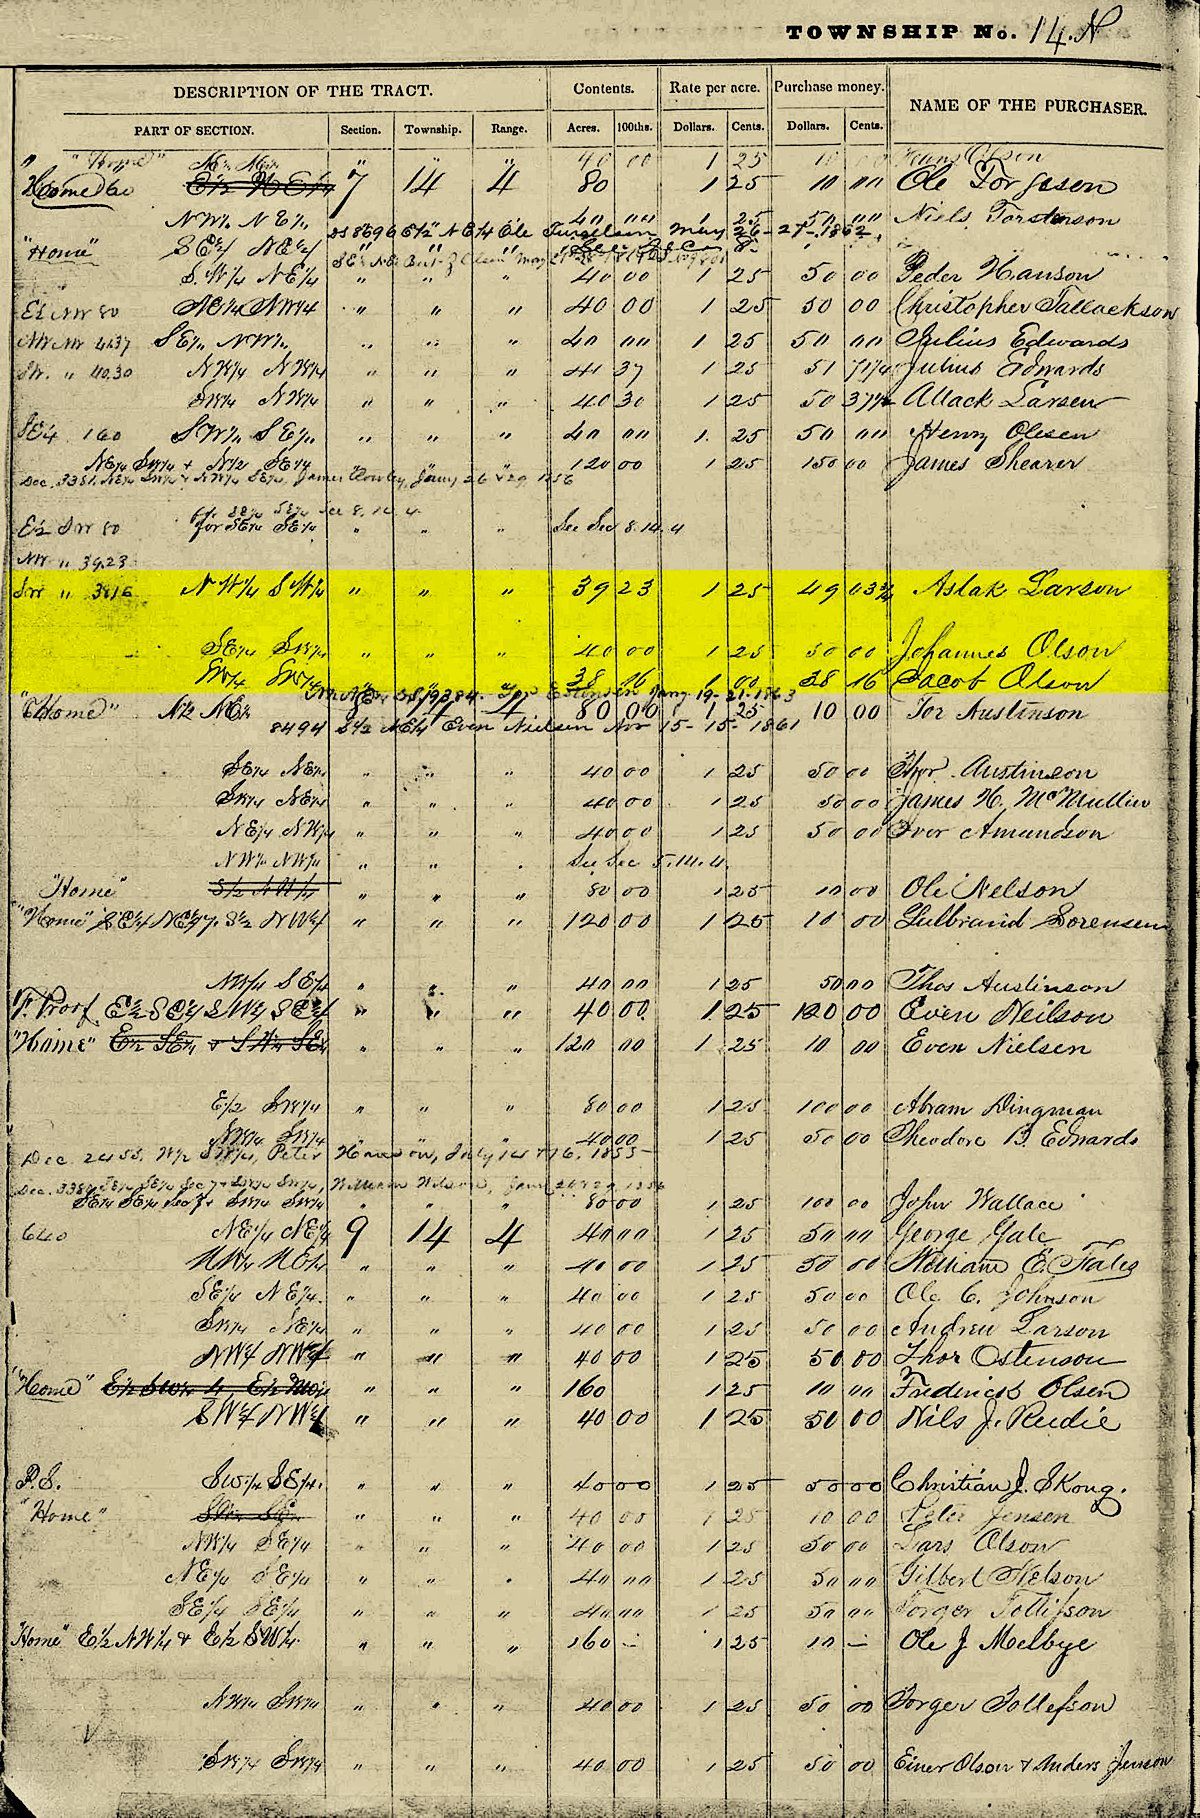 TOWNSHIP No. 14.N
DESCRIPTION OF THE TRACT. Contents. Rate per acre. Purchase money. NAME OF THE PURCHASER.
PART OF SECTION. Section. Township. Range. Acres. 100ths. Dollars. Cents. Dollars. Cents.
" "Home" " " " 40 00 1 25 10 00 Olson
Home E½ NE¼ 7 14 4 80 1 25 10 00 Ole Torgeson
NW¼ NE¼ 40 00 1 25 50 00 Niels Torstenson
8696 E½ NE¼ Ole May 26-27-1862
"Home" SE¼ NE¼ " " "
SW¼ NE¼ " " " 40 00 1 25 50 00 Peder Hanson
E½ NW 80 NE¼ NW¼ " " " 40 00 1 25 50 00 Christopher Tallackson
NW NW 41.37 SE¼ NW¼ " " " 40 00 1 25 50 00 Julius Edwards
SW. " 40.30 NW¼ NW¼ " " " 41 37 1 25 51 71¼ Julius Edwards
SW¼ NW¼ " " " 40 30 1 25 50 37½ Allack Larsen
SE¼ 160 SW¼ SE¼ " " " 40 00 1 25 50 00 Henry Olesen
NE¼ SW¼ + N½ SE¼ " " " 120 00 1 25 150 00 James Shearer
Dec. 3381. NE¼ SW¼ + NW¼ SE¼, James Cowley, Jany 26 + 29 1856
SE¼ SE¼ Sec 8. 14. 4
E½ SW 80 for SE¼ SE¼ " " " See Sec 8. 14. 4
NW " 39.23
SW " 38.16 NW¼ SW¼ " " " 39 23 1 25 49 03¾ Aslak Larson
SE¼ SW¼ " " " 40 00 1 25 50 00 Johannes Olson
SW¼ SW¼ " " " 38 16 1 00 38 16 Jacob Olson
Jany. 19-21-1863
"Home" N½ NE¼ 8 14 4 80 00 1 25 10 00 Tor Austinson
8494 S½ NE¼ Even Nielsen Nov 15-15-1861
SE¼ NE¼ " " " 40 00 1 25 50 00 Thor Austinson
SW¼ NE¼ " " " 40 00 1 25 50 00 James H. McMullin
NE¼ NW¼ " " " 40 00 1 25 50 00 Iver Amundson
NW¼ NW¼ " " " See Sec 5. 14. 4.
"Home" S½ NW¼ " " " 80 00 1 25 10 00 Ole Nelson
"Home" SE¼ NE¼ + S½ NW¼ " " " 120 00 1 25 10 00 Gulbrand Sorensen
NW¼ SE¼ " " " 40 00 1 25 50 00 Thos Austinson
F. Proof E½ SE¼ SW¼ SE¼ " " " 40 00 1 25 120 00 Even Neilson
"Home" E½ SE¼ + SW¼ SE¼ " " " 120 00 1 25 10 00 Even Nielsen
E½ SW¼ " " " 80 00 1 25 100 00 Abram Dingman
NW¼ SW¼ " " " 40 00 1 25 50 00 Theodore B. Edwards
Dec. 2455. W½ SW¼, Peter Hanson, July 14 + 16. 1855
Dec. 3384 SE¼ SE¼ Sec 7 + SW¼ SW¼, William Wilson, Jany 1856
SE¼ SE¼ Sec 7 + SW¼ SW¼ " " " 80 00 1 25 100 00 John Wallace
640 NE¼ NE¼ 9 14 4 40 00 1 25 50 00 George Gale
NW¼ NE¼ " " " 40 00 1 25 50 00 William E. Fales
SE¼ NE¼ " " " 40 00 1 25 50 00 Ole C. Johnson
SW¼ NE¼ " " " 40 00 1 25 50 00 Andrew Larson
NW¼ NW¼ " " " 40 00 1 25 50 00 Thor Ostenson
"Home" E½ SW¼, E½ NW¼ " " " 160 1 25 10 00 Frederick Olsen
SW¼ NW¼ " " " 40 00 1 25 50 00 Nils J. Rudie
P.S. SW¼ SE¼. " " " 40 00 1 25 50 00 Christian J. Skong.
"Home" SW¼ SE¼ " " " 40 00 1 25 10 00 Peter Jenson
NW¼ SE¼ " " " 40 00 1 25 50 00 Lars Olson
NE¼ SE¼ " " " 40 00 1 25 50 00 Gilbert Nelson
SE¼ SE¼ " " " 40 00 1 25 50 00 Torger Tollifson
"Home" E½ NW¼ + E½ SW¼. " " " 160 — 1 25 10 — Ole J Melbye
NW¼ SW¼ " " " 40 00 1 25 50 00 Torger Tollefson
SW¼ SW¼ " " " 40 00 1 25 50 00 Einer Olson + Anders Jenson